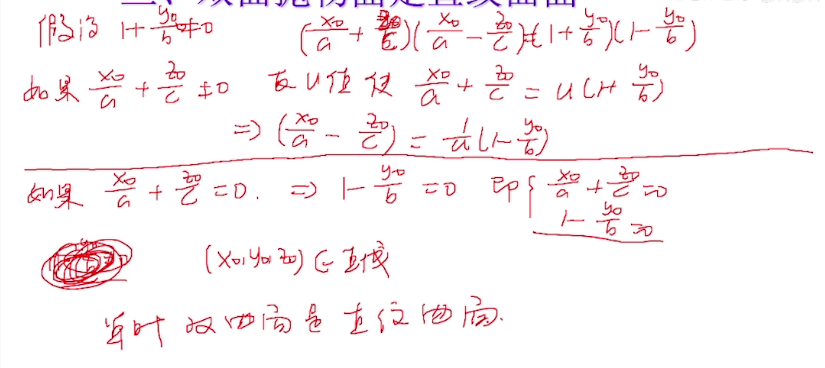 二、双曲抛物面是直纹曲面
假设 1+y₀/b≠0 (x₀/a + z₀/c)(x₀/a - z₀/c)=(1+y₀/b)(1-y₀/b)
如果 x₀/a + z₀/c ≠0 有u值使 x₀/a + z₀/c = u(1+y₀/b)
⇒ (x₀/a - z₀/c) = 1/u(1-y₀/b)
如果 x₀/a + z₀/c =0. ⇒ 1-y₀/b =0 即{ x₀/a + z₀/c =0
1-y₀/b =0
(x₀,y₀,z₀)∈直线
单叶双曲面是直纹曲面.